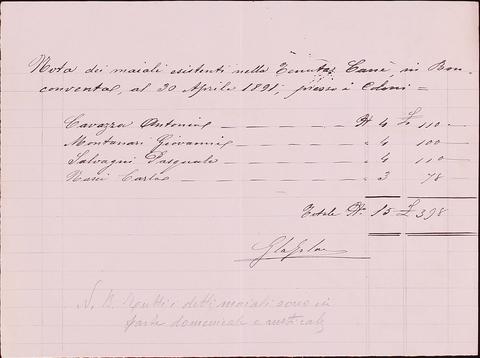 Nota dei maiali esistenti nella Tenuta in Bon
convento, al 20 Aprile 1891, presso i Coloni =
Cavazza Antonio — — — — N° 4 £ 110 —
Montanari Giovanni — — — — " 4 100 —
Salvagni Pasquale — — — — " 4 110 —
Carlo — — — — " 3 78 —
Totale N° 15 £ 398
N. B. detti maiali sono in
parte domenicale e